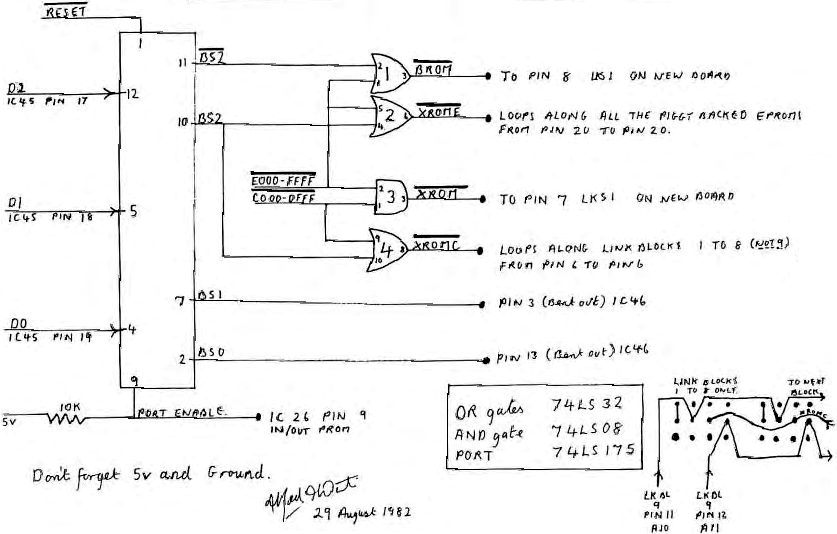 RESET
1
11 BS2
2 1 3 BROM
TO PIN 8 LKS1 ON NEW BOARD
D2
IC45 PIN 17
12
10 BS2
5 2 6 XROME
4
LOOPS ALONG ALL THE PIGGY BACKED EPROMS
FROM PIN 20 TO PIN 20.
E000-FFFF
C000-DFFF
2 3 3 XROM
TO PIN 7 LKS1 ON NEW BOARD
D1
IC45 PIN 18
5
9 4 8 XROMC
10
LOOPS ALONG LINK BLOCKS 1 TO 8 (NOT 9)
FROM PIN 6 TO PIN 6
7 BS1
PIN 3 (Bent out) IC46
D0
IC45 PIN 19
4
2 BS0
PIN 13 (Bent out) IC46
9
10K
5V
PORT ENABLE.
IC 26 PIN 9
IN/OUT PROM
OR gates 74LS32
AND gate 74LS08
PORT 74LS175
LINK BLOCKS
1 TO 8 ONLY.
TO NEXT
BLOCK.
XROMC
LKBL
9
PIN 11
A10
LKBL
9
PIN 12
A11
Don't forget 5v and Ground.
29 August 1982